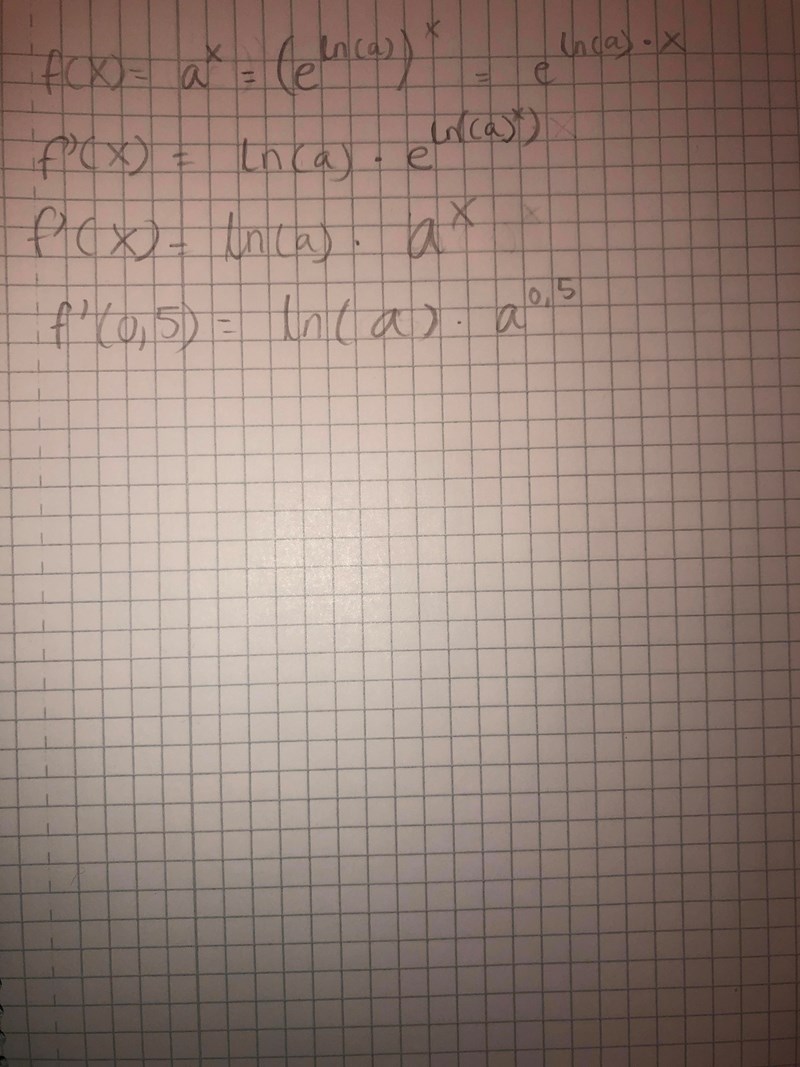 f(x) = a^x = (e^ln(a))^x = e^ln(a)·x
f'(x) = ln(a) · e^ln((a)^x)
f'(x) = ln(a) · a^x
f'(0,5) = ln(a) · a^0,5